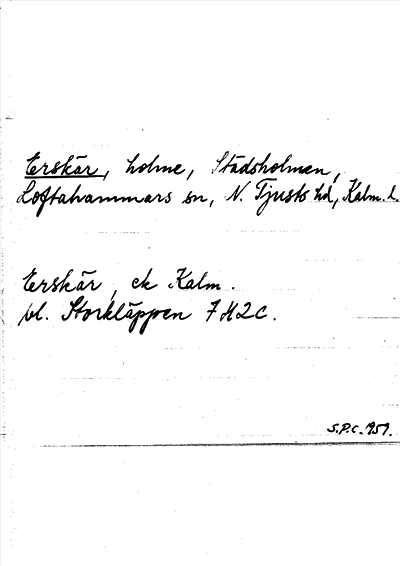 Erskär, holme, Stadsholmen,
Loftahammars sn, N. Tjusts hd, Kalm. l.
Erskär, ek Kalm.
bl. Storkläppen 7H2C.
S.P.C. 1951.